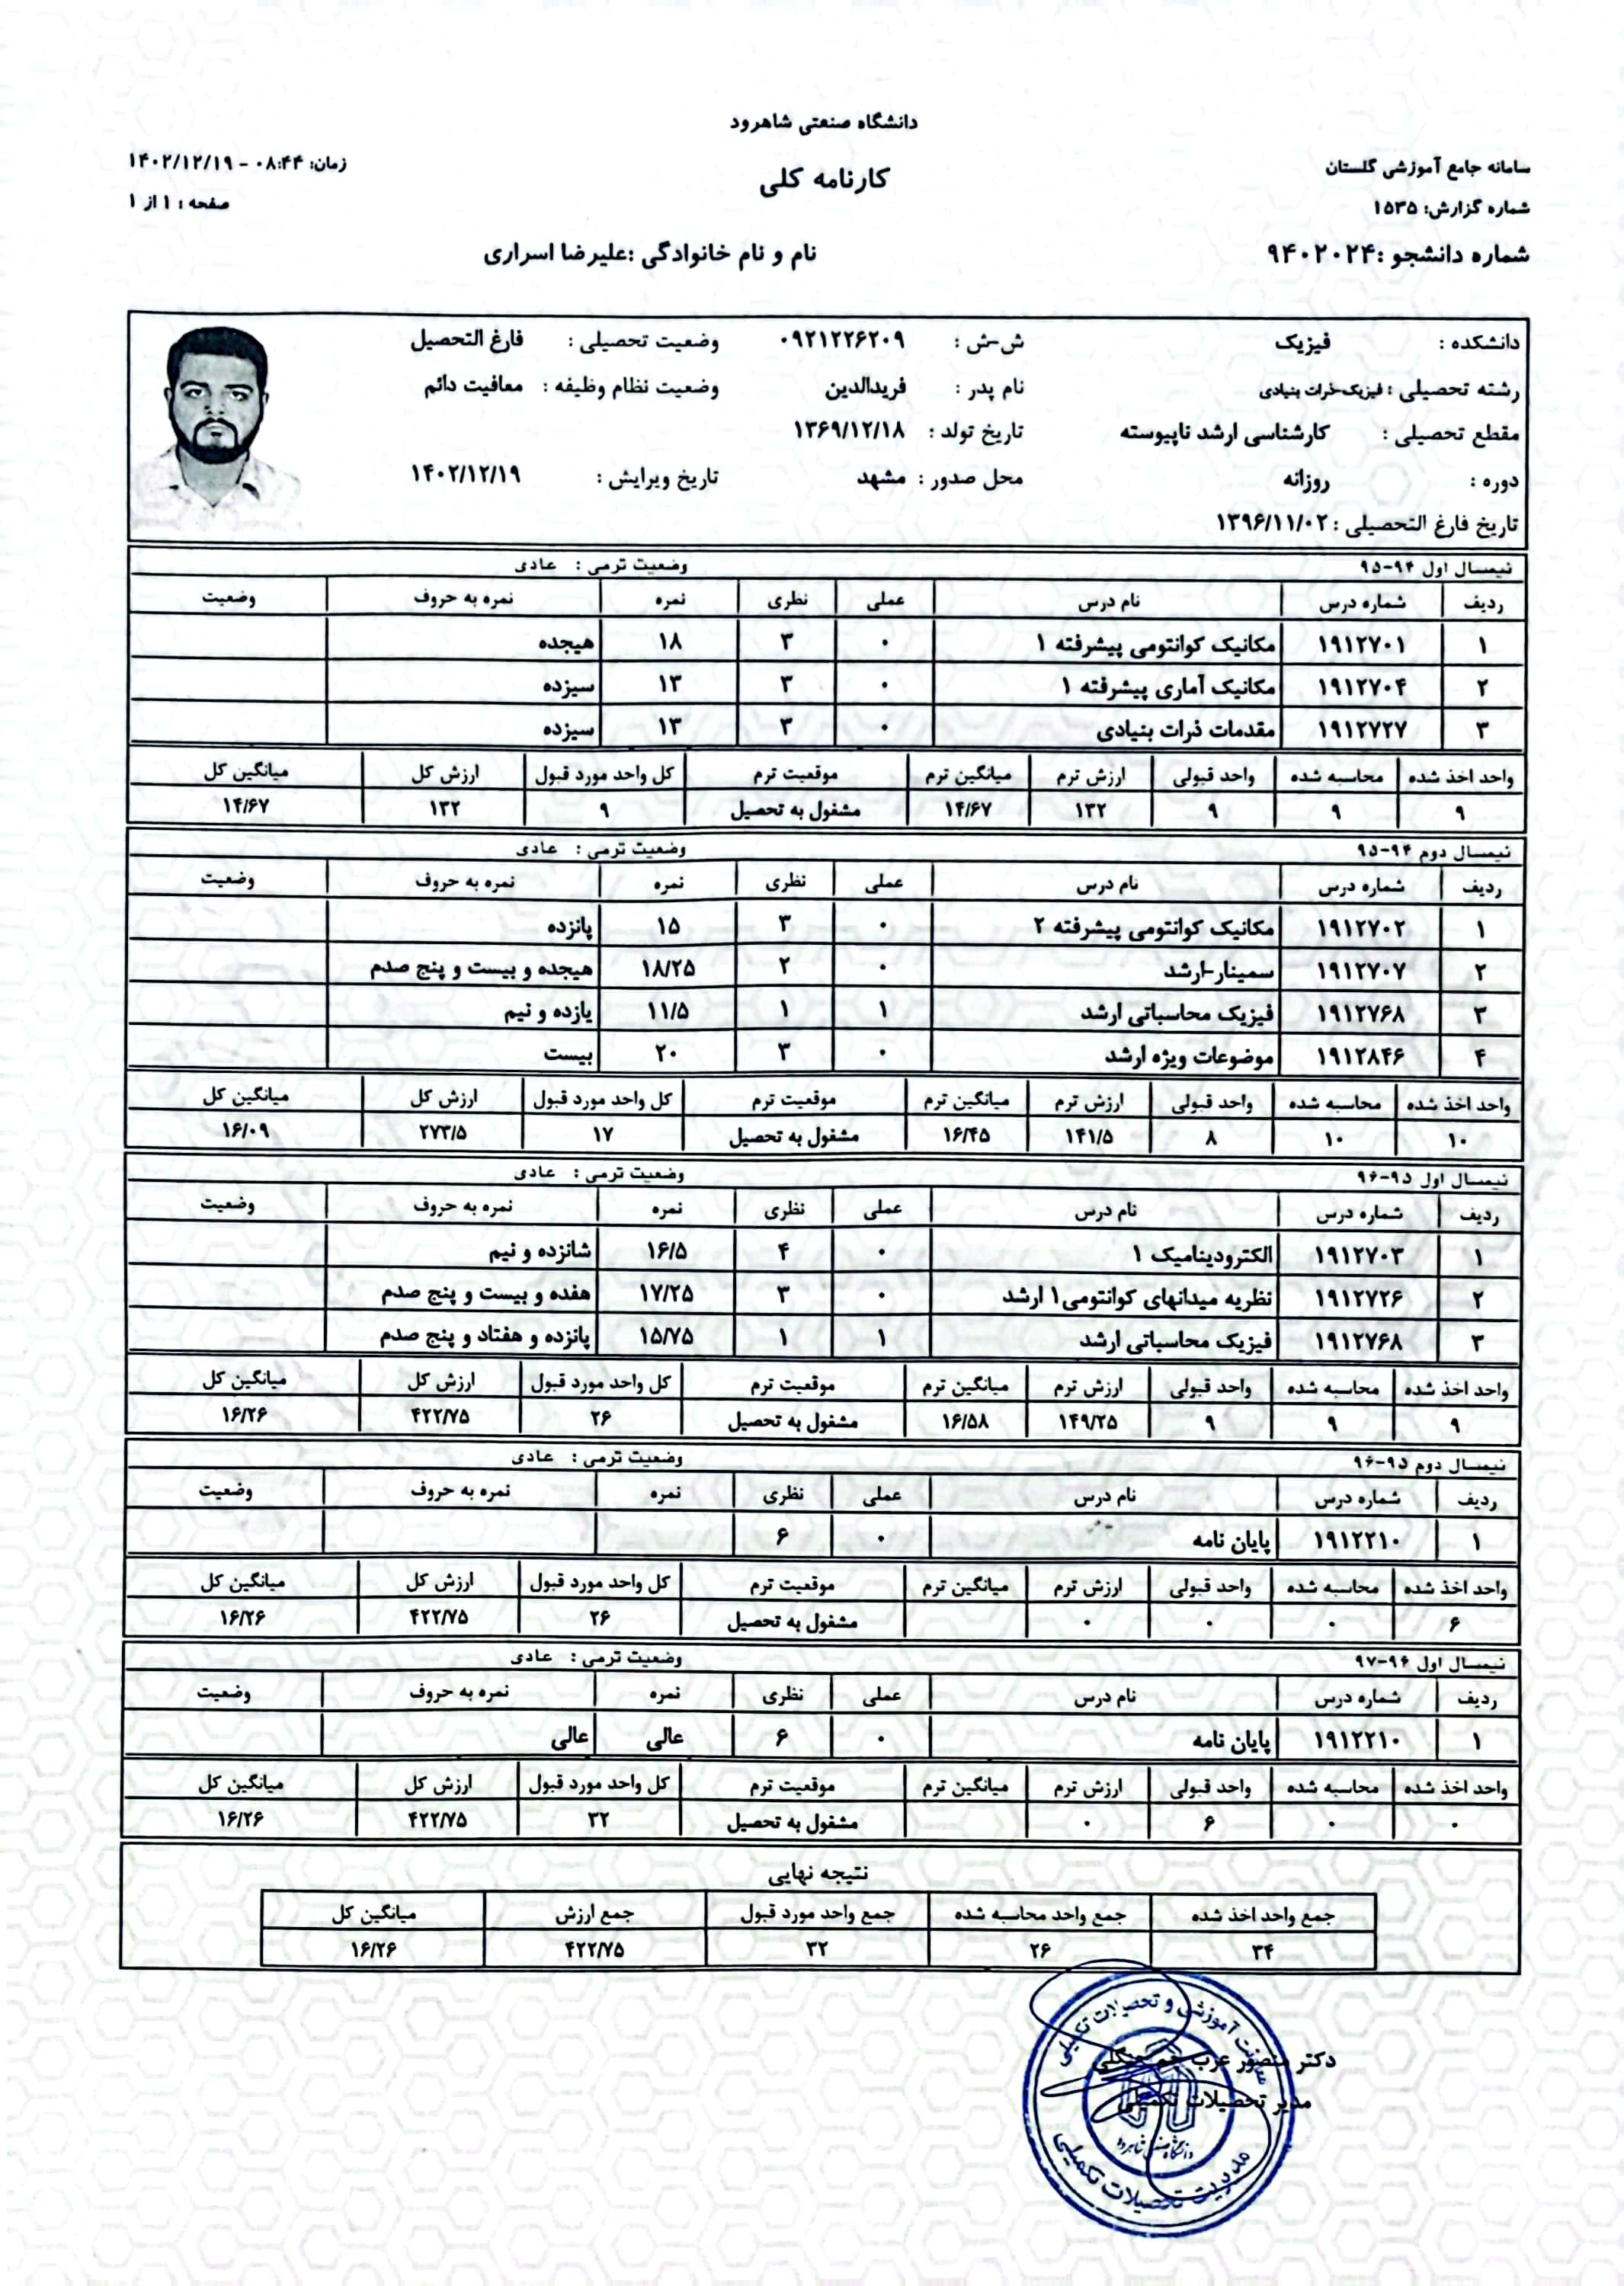 دانشگاه صنعتی شاهرود
سامانه جامع آموزشی گلستان
زمان: ۰۸:۴۴ - ۱۴۰۲/۱۲/۱۹
کارنامه کلی
شماره گزارش: ۱۵۳۵
صفحه : ۱ از ۱
شماره دانشجو :۹۴۰۲۰۲۴ نام و نام خانوادگی :علیرضا اسراری
دانشکده : فیزیک ش-ش : ۰۹۲۱۲۲۶۲۰۹ وضعیت تحصیلی : فارغ التحصیل
رشته تحصیلی : فیزیک-ذرات بنیادی نام پدر : فریدالدین وضعیت نظام وظیفه : معافیت دائم
مقطع تحصیلی : کارشناسی ارشد ناپیوسته تاریخ تولد : ۱۳۶۹/۱۲/۱۸
دوره : روزانه محل صدور : مشهد تاریخ ویرایش : ۱۴۰۲/۱۲/۱۹
تاریخ فارغ التحصیلی : ۱۳۹۶/۱۱/۰۲
نیمسال اول ۹۴-۹۵ وضعیت ترمی : عادی
ردیف شماره درس نام درس عملی نظری نمره نمره به حروف وضعیت
۱ ۱۹۱۲۷۰۱ مکانیک کوانتومی پیشرفته ۱ ۰ ۳ ۱۸ هیجده
۲ ۱۹۱۲۷۰۴ مکانیک آماری پیشرفته ۱ ۰ ۳ ۱۳ سیزده
۳ ۱۹۱۲۷۲۷ مقدمات ذرات بنیادی ۰ ۳ ۱۳ سیزده
واحد اخذ شده محاسبه شده واحد قبولی ارزش ترم میانگین ترم موقعیت ترم کل واحد مورد قبول ارزش کل میانگین کل
۹ ۹ ۹ ۱۳۲ ۱۴/۶۷ مشغول به تحصیل ۹ ۱۳۲ ۱۴/۶۷
نیمسال دوم ۹۴-۹۵ وضعیت ترمی : عادی
ردیف شماره درس نام درس عملی نظری نمره نمره به حروف وضعیت
۱ ۱۹۱۲۷۰۲ مکانیک کوانتومی پیشرفته ۲ ۰ ۳ ۱۵ پانزده
۲ ۱۹۱۲۷۰۷ سمینار-ارشد ۰ ۲ ۱۸/۲۵ هیجده و بیست و پنج صدم
۳ ۱۹۱۲۷۶۸ فیزیک محاسباتی ارشد ۱ ۱ ۱۱/۵ یازده و نیم
۴ ۱۹۱۲۸۴۶ موضوعات ویژه ارشد ۰ ۳ ۲۰ بیست
واحد اخذ شده محاسبه شده واحد قبولی ارزش ترم میانگین ترم موقعیت ترم کل واحد مورد قبول ارزش کل میانگین کل
۱۰ ۱۰ ۸ ۱۴۱/۵ ۱۶/۴۵ مشغول به تحصیل ۱۷ ۲۷۳/۵ ۱۶/۰۹
نیمسال اول ۹۵-۹۶ وضعیت ترمی : عادی
ردیف شماره درس نام درس عملی نظری نمره نمره به حروف وضعیت
۱ ۱۹۱۲۷۰۳ الکترودینامیک ۱ ۰ ۴ ۱۶/۵ شانزده و نیم
۲ ۱۹۱۲۷۲۶ نظریه میدانهای کوانتومی۱ ارشد ۰ ۳ ۱۷/۲۵ هفده و بیست و پنج صدم
۳ ۱۹۱۲۷۶۸ فیزیک محاسباتی ارشد ۱ ۱ ۱۵/۷۵ پانزده و هفتاد و پنج صدم
واحد اخذ شده محاسبه شده واحد قبولی ارزش ترم میانگین ترم موقعیت ترم کل واحد مورد قبول ارزش کل میانگین کل
۹ ۹ ۹ ۱۴۹/۲۵ ۱۶/۵۸ مشغول به تحصیل ۲۶ ۴۲۲/۷۵ ۱۶/۲۶
نیمسال دوم ۹۵-۹۶ وضعیت ترمی : عادی
ردیف شماره درس نام درس عملی نظری نمره نمره به حروف وضعیت
۱ ۱۹۱۲۲۱۰ پایان نامه ۰ ۶
واحد اخذ شده محاسبه شده واحد قبولی ارزش ترم میانگین ترم موقعیت ترم کل واحد مورد قبول ارزش کل میانگین کل
۶ ۰ ۰ ۰ مشغول به تحصیل ۲۶ ۴۲۲/۷۵ ۱۶/۲۶
نیمسال اول ۹۶-۹۷ وضعیت ترمی : عادی
ردیف شماره درس نام درس عملی نظری نمره نمره به حروف وضعیت
۱ ۱۹۱۲۲۱۰ پایان نامه ۰ ۶ عالی عالی
واحد اخذ شده محاسبه شده واحد قبولی ارزش ترم میانگین ترم موقعیت ترم کل واحد مورد قبول ارزش کل میانگین کل
۰ ۰ ۶ ۰ مشغول به تحصیل ۳۲ ۴۲۲/۷۵ ۱۶/۲۶
نتیجه نهایی
جمع واحد اخذ شده جمع واحد محاسبه شده جمع واحد مورد قبول جمع ارزش میانگین کل
۳۴ ۲۶ ۳۲ ۴۲۲/۷۵ ۱۶/۲۶
آموزشی و تحصیلات تکمیلی
دکتر منصور عرب
مدیر تحصیلات تکمیلی
دانشگاه صنعتی شاهرود
مدیریت تحصیلات تکمیلی